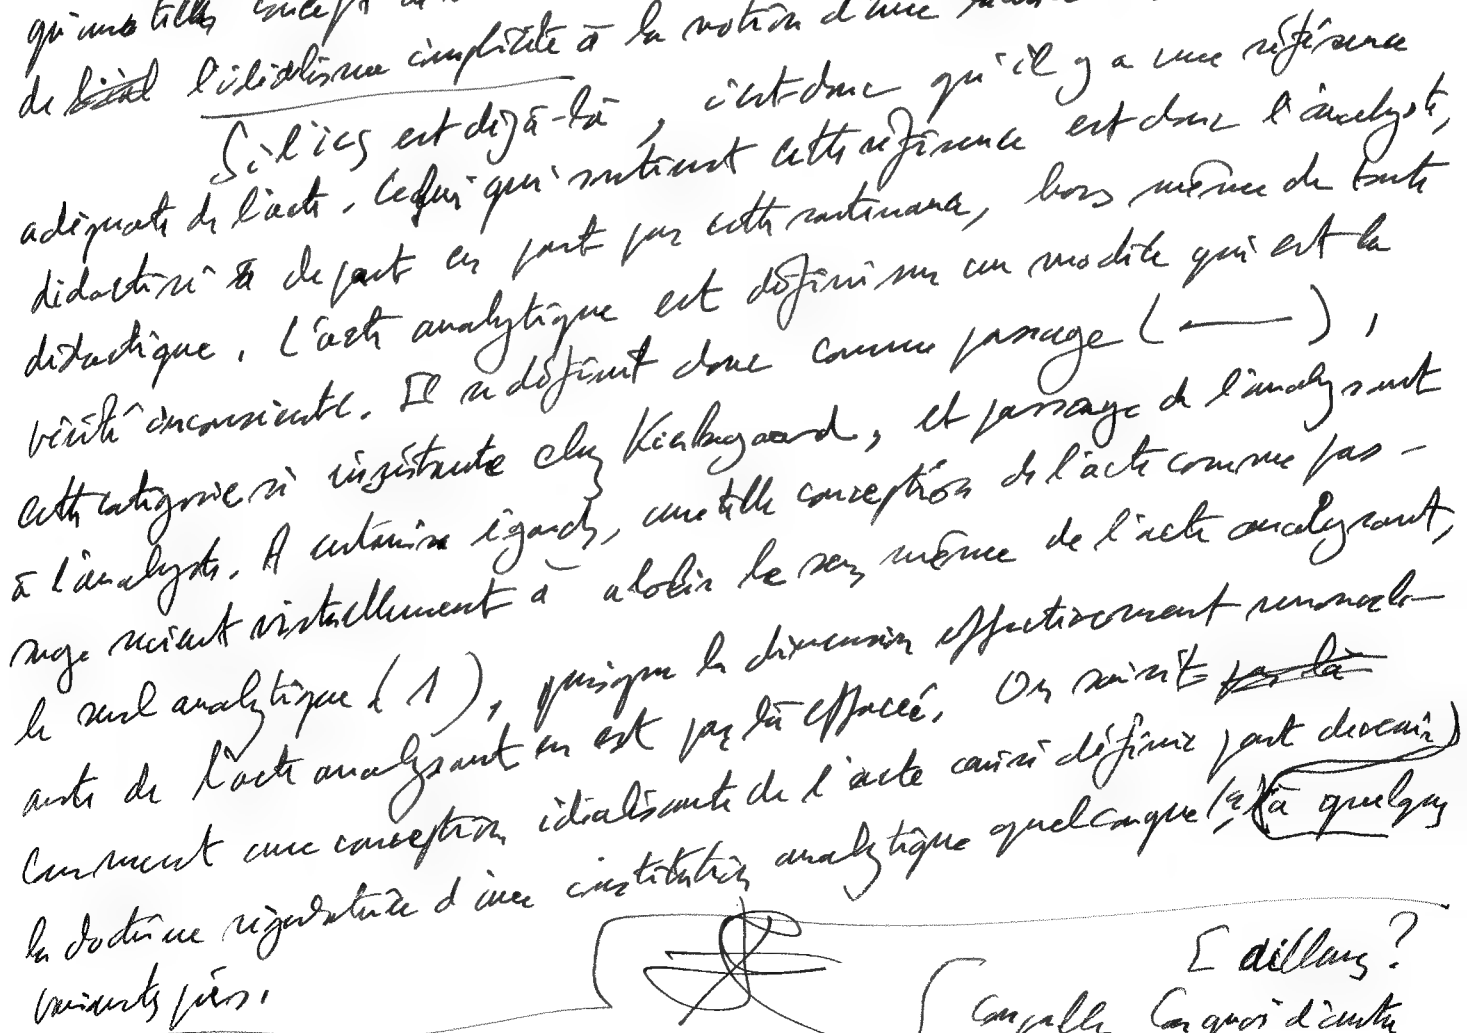 qu'une telle
de l'idéalisme implicite à la notion d'une
Si l'ics est déjà-là, c'est donc qu'il y a une référence
adéquate de l'acte. Celui qui soutient cette référence est donc l'analyste,
didactisé à départ en part par cette soutenance, hors même de toute
didactique. L'acte analytique est défini sur un modèle qui est la
vérité inconsciente. Il se définit donc comme passage ( —— ),
cette catégorie si insistante chez Kierkegaard, et passage de l'analysant
à l'analyste. A certains égards, une telle conception de l'acte comme pas-
sage revient virtuellement à abolir le sens même de l'acte analysant,
le seul analytique (1), puisque la dimension effectivement renouvel-
ante de l'acte analysant en est par là effacée. On saisit par là
comment une conception idéalisante de l'acte ainsi définie peut devenir
la doctrine régulatrice d'une institution analytique quelconque (2) (à quelques
variantes près.
[ ailleurs ?